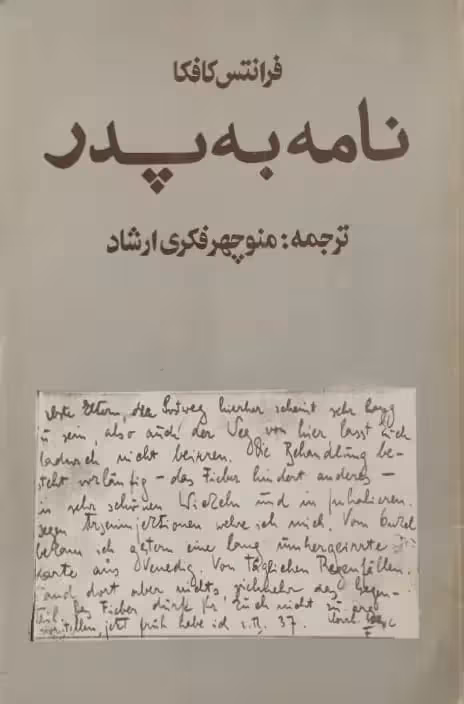 فرانتس کافکا
نامه به پدر
ترجمه: منوچهر فکری ارشاد
Eltern, der Postweg hierher scheint sehr lang
zu sein, also auch der Weg von hier lasst Euch
dadurch nicht beirren. Die Behandlung be-
steht vorläufig – das Fieber hindert anderes –
in sehr schönen Wickeln und in Inhalieren.
Gegen Arseninjektionen wehre ich mich. Vom Onkel
bekam ich gestern eine lang umhergeirrte
Karte aus Venedig. Von täglichen Regenfällen
stand dort aber nichts, vielmehr das Gegen-
teil. Das Fieber dürft Ihr Euch nicht zu arg
vorstellen, jetzt früh habe ich z.B. 37.
F